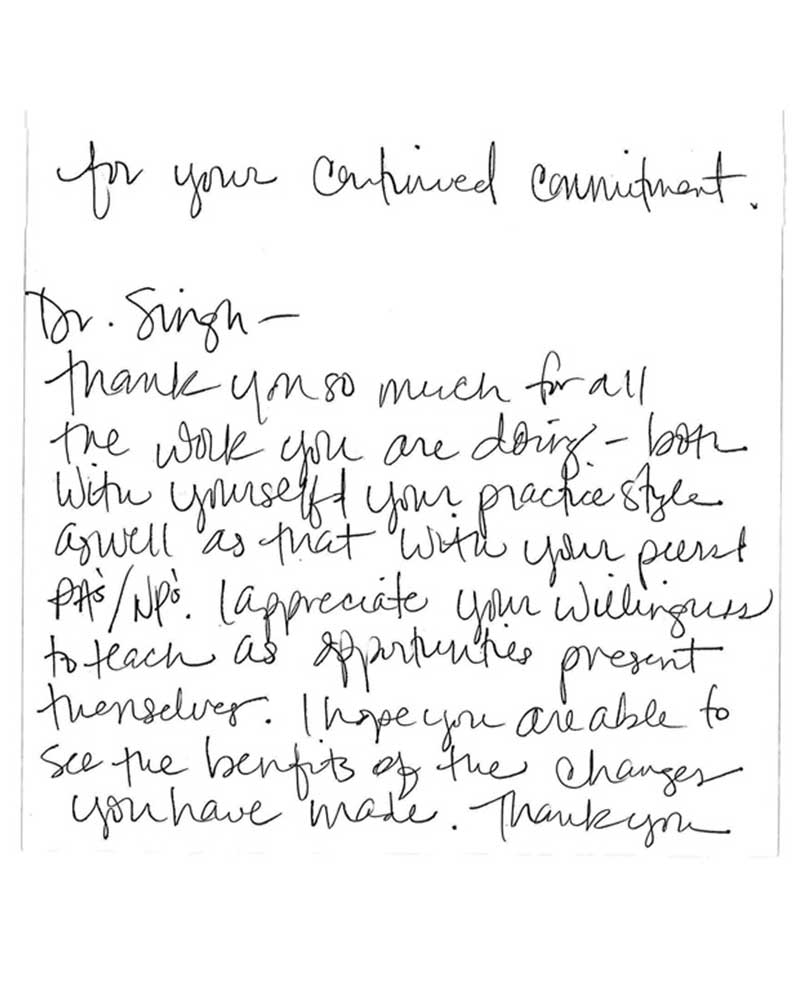 for your continued commitment.
Dr. Singh -
thank you so much for all
the work you are doing - both
with yourself & your practice style
as well as that with your peers &
PA's/NP's. I appreciate your willingness
to teach as opportunities present
themselves. I hope you are able to
see the benefits of the changes
you have made. Thank you